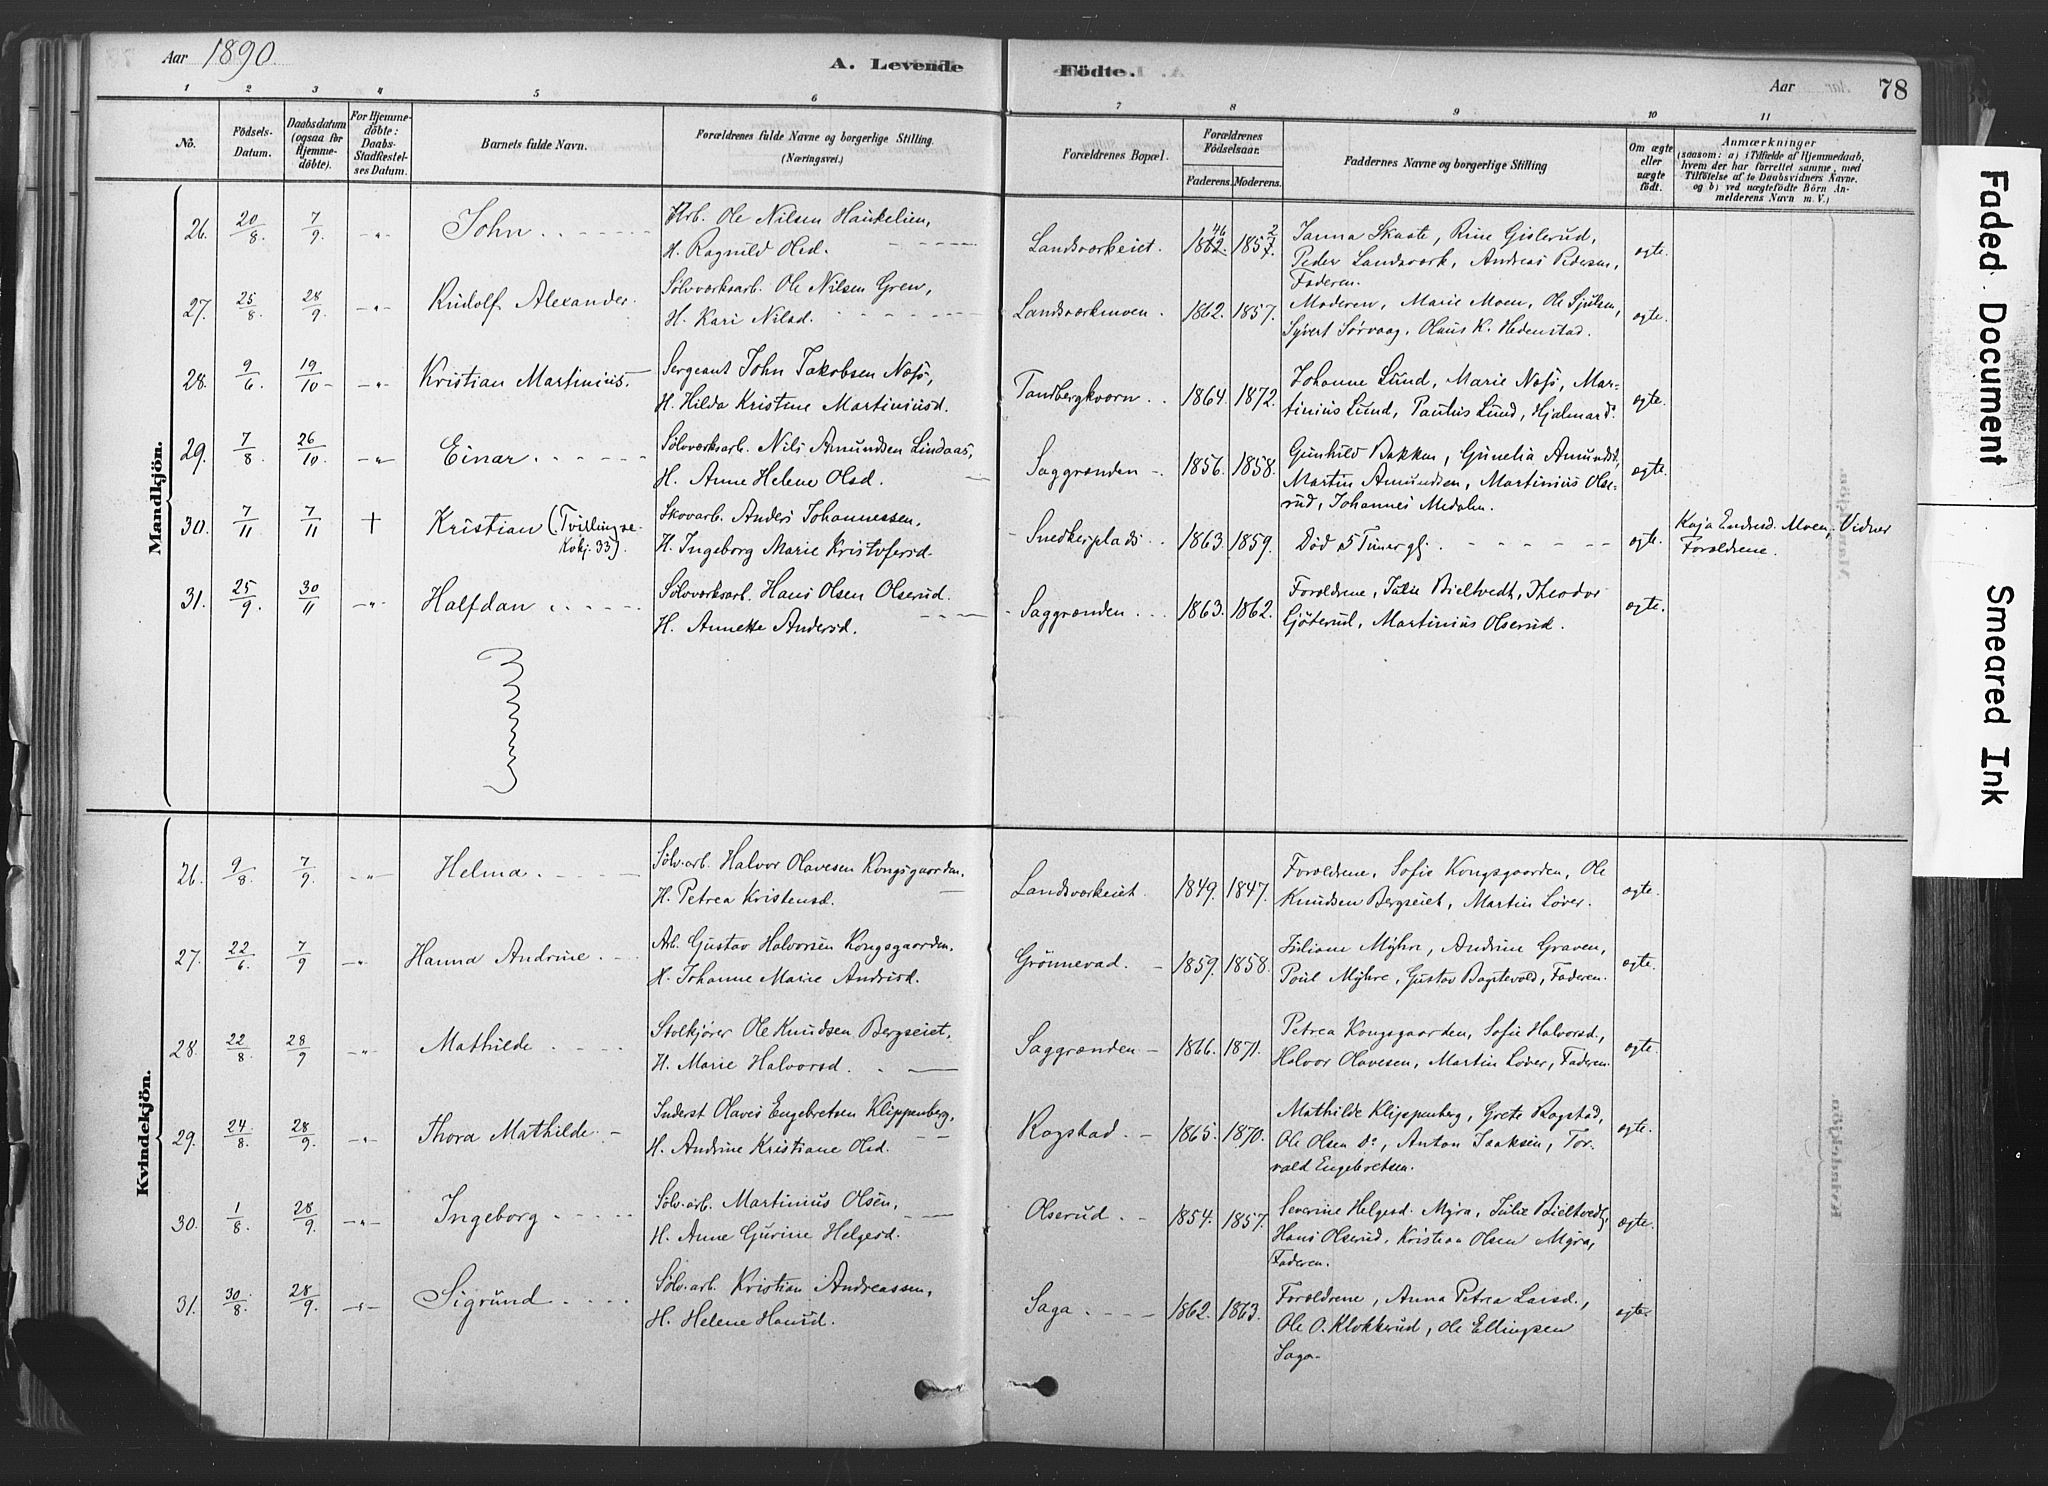 Aar 1890.
A. Levende Födte.
Aar
78
1 2 3 4 5 6 7 8 9 10 11
No.
Födsels-Datum.
Daabsdatum (ogsaa for Hjemme-döbte).
For Hjemme-döbte: Daabs-Stadfæstel-ses Datum.
Barnets fulde Navn.
Forældrenes fulde Navne og borgerlige Stilling.
(Næringsvei.)
Forældrenes Bopæl.
Forældrenes Födselsaar.
Faderens. Moderens.
Faddernes Navne og borgerlige Stilling
Om ægte eller uægte födt.
Anmærkninger
(saasom: a) i Tilfælde af Hjemmedaab,
hvem der har forrettet samme, med
Tilföielse af to Daabsvidners Navne,
og b) ved uægtefödte Börn An-
melderens Navn m. V.)
Mandkjön.
26. 20/8. 7/9. -"- John
Arb. Ole Nilsen Haukelien,
H. Ragnild Olsd.
Landsværkeiet. 1862. 46 1857. 2
Janna Skaate, Rine Gislerud,
Peder Landsværk, Andreas Pedersen,
Faderen.
ægte.
27. 25/8. 28/9. -"- Rudolf Alexander.
Sölvværksarb. Ole Nilsen Gren,
H. Kari Nilsd.
Landsværkmoen. 1862. 1857.
Moderen, Marie Moen, Ole Sjulsen,
Syvert Sörvaag, Olaus K. Hedenstad.
ægte.
28. 9/6. 19/10 -"- Kristian Martinius.
Sergeant John Jakobsen Næss,
H. Hilda Kristine Martiniusd.
Tandbergkværn. 1864. 1872.
Johanne Lund, Marie Næss, Mar-
tinius Lund, Paulus Lund, Hjalmar do.
ægte.
29. 7/8. 26/10. -"- Einar
Sölvværksarb. Nils Amundsen Lindaas,
H. Anne Helene Olsd.
Saggrænden 1856. 1858.
Gunhild Bakken, Gunelia Amundsd,
Martin Amundsen, Martinius Olse-
rud, Johannes Medalen.
ægte.
30. 7/11 7/11 + Kristian (Tvilling se
Kvkj. 33).
Skovarb. Anders Johannessen,
H. Ingeborg Marie Kristofersd.
Snedkerplads. 1863. 1859.
Död 5 Timer gl.
ægte.
Kaja Endresd. Moen, Vidner
Forældrene.
31. 25/9. 30/11 -"- Halfdan
Sölvværksarb. Hans Olsen Olserud.
H. Annette Andersd.
Saggrænden 1863. 1862.
Forældrene, Julie Bieltvedt, Theodor
Gjöterud, Martinius Olserud.
ægte.
Kvindekjön.
26. 9/8. 7/9. -"- Helma
Sölv.arb. Halvor Olavesen Kongsgaarden.
H. Petrea Kristensd.
Landsværkeiet. 1849. 1847.
Forældrene, Sofie Kongsgaarden, Ole
Knudsen Bergseiet, Martin Löver.
ægte.
27. 22/6. 7/9 -"- Hanna Andrine.
Arb. Gustav Halvorsen Kongsgaarden.
H. Johanne Marie Andrisd.
Grönnevad. 1859. 1858.
Juliane Myhre, Andrine Graven,
Poul Myhre, Gustav Bagtevold, Faderen.
ægte.
28. 22/8. 28/9 -"- Mathilde
Stolkjörer Ole Knudsen Bergseiet,
H. Marie Halvorsd.
Saggrænden 1866. 1871.
Petrea Kongsgaarden, Sofie Halvorsd.,
Halvor Olavesen, Martin Löver, Faderen.
ægte.
29. 24/8. 28/9. -"- Thora Mathilde.
Inderst Olaves Engebretsen Klippenberg,
H. Andrine Kristiane Olsd.
Rogstad. 1865. 1870.
Mathilde Klippenberg, Grete Rogstad,
Ole Olsen do, Anton Isaksen, Tor-
vald Engebretsen.
ægte.
30. 1/8. 28/9. -"- Ingeborg
Sölv.arb. Martinius Olsen,
H. Anne Gurine Helgesd.
Olserud. 1854. 1857.
Severine Helgesd. Myra, Julie Bieltvedt,
Hans Olserud, Kristian Olsen Myra,
Faderen.
ægte.
31. 30/8. 28/9. -"- Sigrund
Sölv.arb. Kristian Andreassen,
H. Helene Hansd.
Saga 1862. 1863.
Forældrene, Anna Petrea Larsd.,
Ole O. Klokkerud, Ole Ellingsen
Saga.
ægte.
Faded Document
Smeared Ink